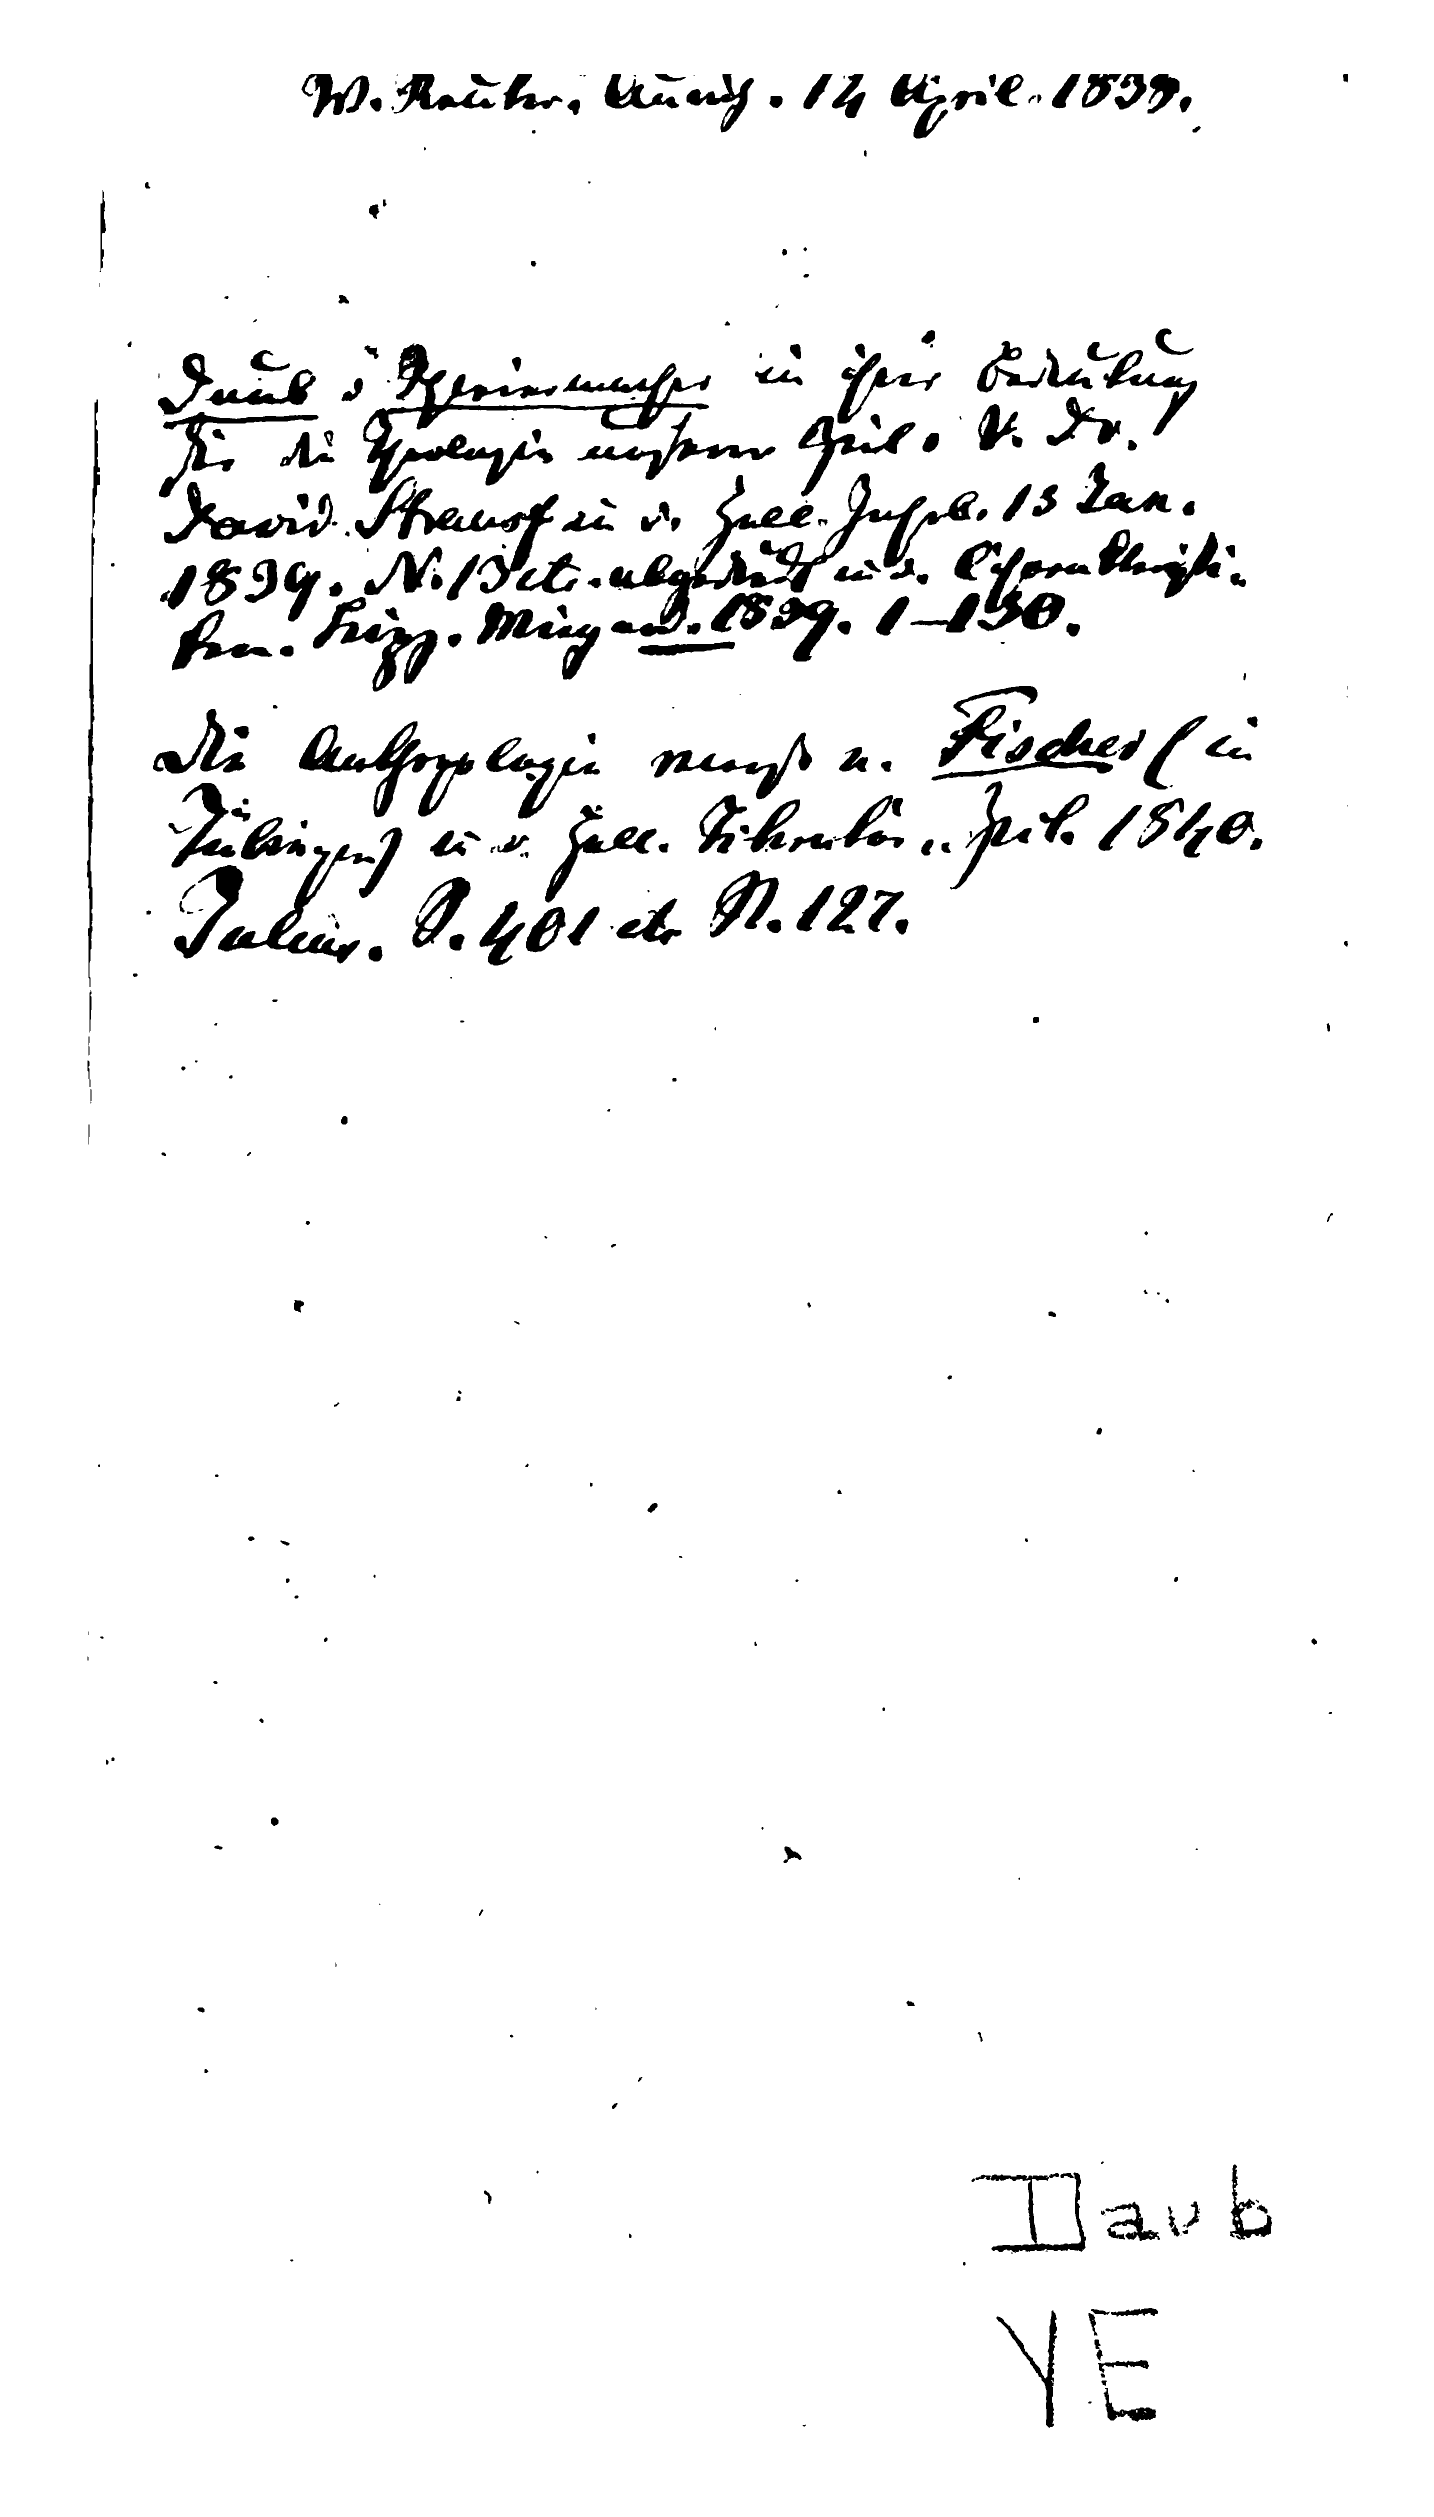 W. Reuter. Aurich. 14 April. 1838.
Daub u Schleiermacher in ihrer Bedeutung
für die Theologie unserer Zeit. V. Dr.
David Strauß in d. Hall. Jahrb. 13 Jan.
1839. N. 13 etc. abgedruckt in d. Charakteristi-
ken. Leipz. Wigand. 1839. 1-150.
Die Anthropologie v. Fischer (in
Tübingen) in d. Hall. Literatur. Zeit. 1840.
Julius. S. 401 etc N. 127.
Daub
YE